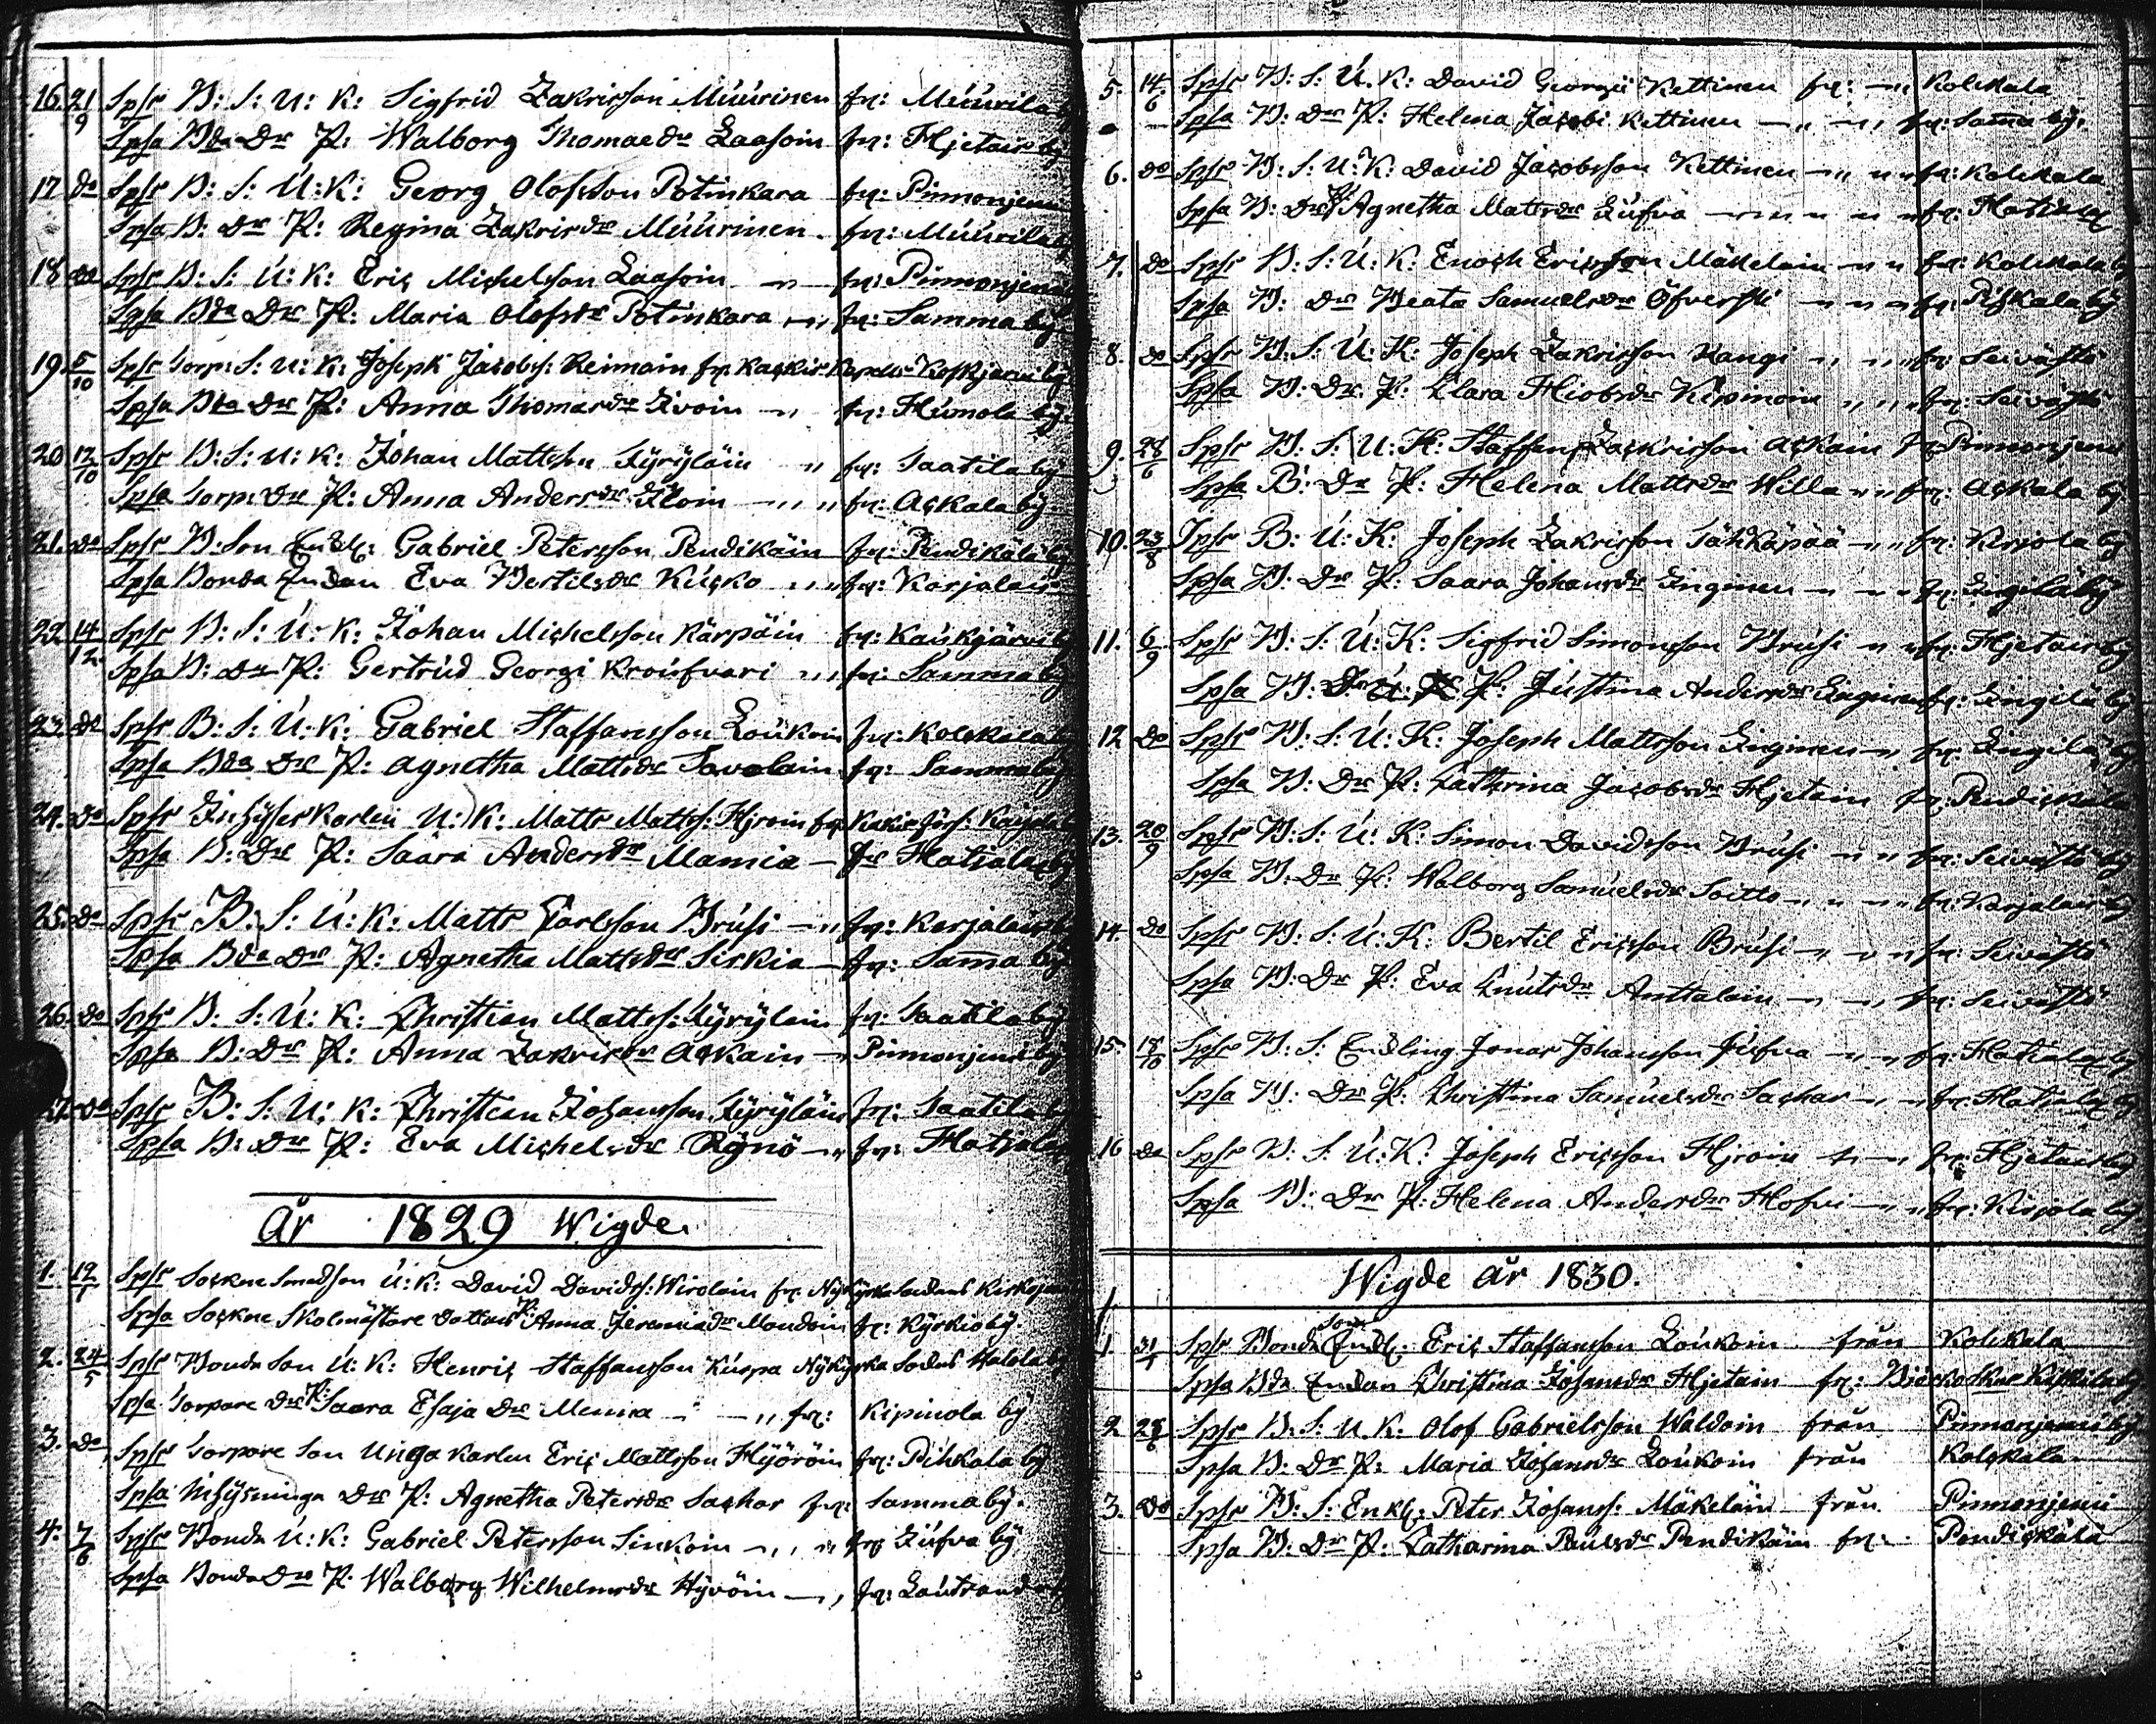 16. 21/9 Spsr B: S: U: K: Sigfrid Zakrisson Muurinen fr: Muurila
Spsa Bda Dr P: Walborg Thomaedr Laasoin fr: Hjetais by
17 do Spsr B: S: U: K: Georg Olofsson Potinkara fr: Pinnonjemi
Spsa B: Dr P: Regina Zakrisdr Muurinen fr: Muurila
18 do Spsr B: S: U: K: Eric Michelsson Laasoin fr: Pinnonjemi
Spsa Bda Dr P: Maria Olofsdr Potinkara fr: Samma by
19. 5/10 Spsr Torp: S: U: K: Joseph Jacobs: Reimain fr. Kackis Kapells Koskjervi by
Spsa Bda Dr P: Anna Thomasdr Ivoin fr: Humola by
20 12/10 Spsr B: S: U: K: Johan Mattsson Kyryläin fr: Saatila by
Spsa Torp: Dr P: Anna Andersdr Iloin fr: Ackala by
21. do Spsr B: Son Enkl: Gabriel Petersson Pendikäin fr: Pendikälä by
Spsa Bonda Enkan Eva Bertilsdr Kucko fr: Karjalais
22 14/12 Spsr B: S: U: K: Johan Michelsson Kärpäin fr: Kaukjärvi
Spsa B: Dr P: Gertrud Georgi Kroufvari fr: Samma by
23. do Spsr B: S: U: K: Gabriel Staffansson Loukoin fr: Kolckala
Spsa Bda Dr P: Agnetha Mattsdr Savolain fr: Samma by
24. do Spsr Inhyseskarlen U: K: Matts Matts: Hjroin fr.
Spsa B: Dr P: Saara Andersdr Mamia fr Hatjalax
25. do Spsr B: S: U: K: Matts Carlsson Brusi fr: Karjalais
Spsa Bda Dr P: Agnetha Mattsdr Sirkia fr: Sam̄a by
26. do Spsr B: S: U: K: Christian Matts: Kyryläin fr: Saatila by
Spsa B: Dr P: Anna Zakrisdr Ackain Pinnonjemi by
27. do Spsr B: S: U: K: Christian Johansson Kyryläin fr: Saatila
Spsa B: Dr P: Eva Michelsdr Rynö fr: Hatjalax
År 1829 Wigde.
1. 19/1 Spsr Sockne Smedson U: K: David Davids: Wirolain fr: Nykyrka Sockens
Spsa Sockne Skolmästare dottren P: Anna Jeremiædr Mondoin fr: Kyrkio by.
2. 24/5 Spsr Bonde Son U: K: Henric Staffansson Kuspa Nykyrka Sockens
Spsa Torpare Dr P: Saara Esaja Dr Menna fr: Kipinola by
3. do Spsr Torpare Son Unga Karlen Eric Mattsson Hyöröin fr: Pihkala by
Spsa Inhysninga Dr P: Agnetha Petersdr Sachar fr: Samma by.
4: 7/6 Spsr Bonde U: K: Gabriel Petersson Sinkoin fr: Jufva by
Spsa Bonda Dr P. Walborg Wilhelmsdr Hyvöin fr: Lautranda
5. 14/6 Spsr B: S: U. K: David Georgii Kettinen fr: Kolckala
Spsa B: Dr P: Helena Jacobi Kettinen fr: Sam̄a by.
6. do Spsr B: S: U: K: David Jacobsson Kettinen fr: Kolckala
Spsa B: Dr P: Agnetha Mattsdr Jufva fr: Hatjalax
7. do Spsr B: S: U: K: Enoch Ericsson Mäkelain fr: Kolckala
Spsa B: Dr Beata Samuelsdr Öfverski fr: Pihkala by
8. do Spsr B: S: U: K: Joseph Zakrisson Kangi fr: Seivästö
Spsa B: Dr. P: Clara Hiobsdr Kipinoin Seivästö
9. 28/6 Spsr B: S: U: K: Staffan Zackrisson Ackain fr Pinnonjemi
Spsa B: Dr P: Helena Mattsdr Willa fr: Ackala by
10. 23/8 Spsr B: U: K: Joseph Zakrisson Tähkäpää fr Kirjola by
Spsa B: Dr P: Saara Johansdr Inginen fr Ingilä by
11. 6/9 Spsr B: S: U: K: Sigfrid Simonsson Brusi fr: Hjetais by
Spsa B: P: Justina Andersdr Inginen fr: Ingilä by
12 do Spsr B: S: U: K: Joseph Mattsson Inginen fr Ingilä by
Spsa B: Dr P: Catharina Jacobsdr Hjetain fr Pendickälä
13. 20/9 Spsr B: S: U: K: Simon Davidsson Brusi fr: Seivästö by
Spsa B: Dr P: Walborg Samuelsdr Soitto fr: Karjalais by
14. do Spsr B: S: U: K: Bertil Ericsson Brusi fr: Seivästö
Spsa B: Dr P: Eva Knutsdr Anttalain fr: Seivästö
15. 18/10 Spsr B: S: Enkling Jonas Johansson Jufva fr: Hatjalax by
Spsa B: Dr P: Christina Samuelsdr Sachar fr: Hatjalax by
16 do Spsr B: S: U: K: Joseph Ericsson Hjroin fr: Hjetais by
Spsa B: Dr P: Helena Andersdr Hofvi fr: Kirjola by
Wigde år 1830.
1. 31/1 Spsr Bonde Son Enkl: Eric Staffansson Loukoin från Kolckala
Spsa Bda Enkan Christina Johansdr Hjetain fr: Biörkö
2 28/6 Spsr B: S: U. K: Olof Gabrielsson Waldoin från Pinnonjemi by
Spsa B: Dr P: Maria Johansdr Loukoin från Kolckala
3. do Spsr B: S: Enkl: Peter Johans: Mäkeläin från Pinnonjemi
Spsa B: Dr P: Catharina Paulsdr Pendikäin fr: Pendickälä